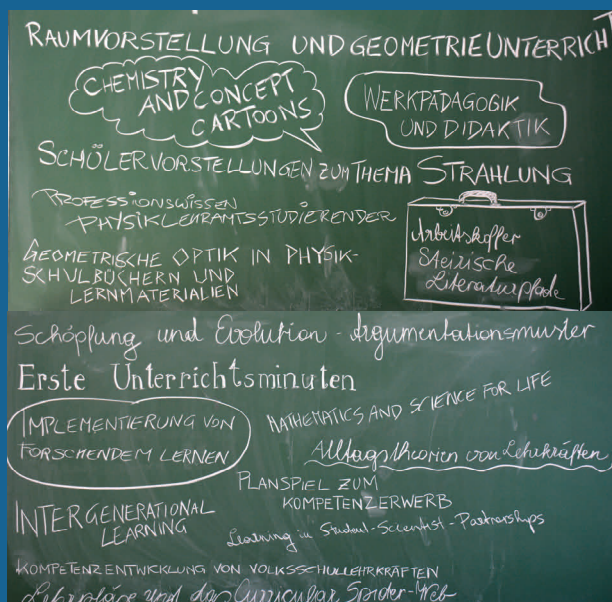 RAUMVORSTELLUNG UND GEOMETRIEUNTERRICHT
CHEMISTRY
AND CONCEPT
CARTOONS
WERKPÄDAGOGIK
UND DIDAKTIK
SCHÜLERVORSTELLUNGEN ZUM THEMA STRAHLUNG
PROFESSIONSWISSEN
PHYSIKLEHRAMTSSTUDIERENDER
Arbeitskoffer
Steirische
Literaturpfade
GEOMETRISCHE OPTIK IN PHYSIK-
SCHULBÜCHERN UND
LERNMATERIALIEN
Schöpfung und Evolution - Argumentationsmuster
Erste Unterrichtsminuten
IMPLEMENTIERUNG VON
FORSCHENDEM LERNEN
MATHEMATICS AND SCIENCE FOR LIFE
Alltagstheorien von Lehrkräften
PLANSPIEL ZUM
KOMPETENZERWERB
INTERGENERATIONAL
LEARNING
Learning in Student-Scientist-Partnerships
KOMPETENZENTWICKLUNG VON VOLKSSCHULLEHRKRÄFTEN
Lehrpläne und das Curricular Spider-Web